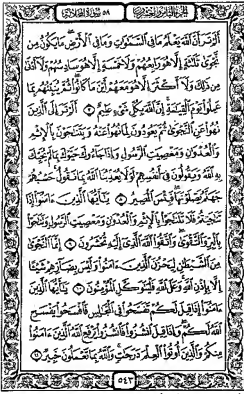 الجزء الثامن والعشرون ٥٨ سورة المجادلة
أَلَمْ تَرَ أَنَّ ٱللَّهَ يَعْلَمُ مَا فِى ٱلسَّمَٰوَٰتِ وَمَا فِى ٱلْأَرْضِ مَا يَكُونُ مِن
نَّجْوَىٰ ثَلَٰثَةٍ إِلَّا هُوَ رَابِعُهُمْ وَلَا خَمْسَةٍ إِلَّا هُوَ سَادِسُهُمْ وَلَآ أَدْنَىٰ
مِن ذَٰلِكَ وَلَآ أَكْثَرَ إِلَّا هُوَ مَعَهُمْ أَيْنَ مَا كَانُوا۟ ثُمَّ يُنَبِّئُهُم بِمَا
عَمِلُوا۟ يَوْمَ ٱلْقِيَٰمَةِ إِنَّ ٱللَّهَ بِكُلِّ شَىْءٍ عَلِيمٌ ٧ أَلَمْ تَرَ إِلَى ٱلَّذِينَ
نُهُوا۟ عَنِ ٱلنَّجْوَىٰ ثُمَّ يَعُودُونَ لِمَا نُهُوا۟ عَنْهُ وَيَتَنَٰجَوْنَ بِٱلْإِثْمِ
وَٱلْعُدْوَٰنِ وَمَعْصِيَتِ ٱلرَّسُولِ وَإِذَا جَآءُوكَ حَيَّوْكَ بِمَا لَمْ يُحَيِّكَ
بِهِ ٱللَّهُ وَيَقُولُونَ فِىٓ أَنفُسِهِمْ لَوْلَا يُعَذِّبُنَا ٱللَّهُ بِمَا نَقُولُ حَسْبُهُمْ
جَهَنَّمُ يَصْلَوْنَهَا فَبِئْسَ ٱلْمَصِيرُ ٨ يَٰٓأَيُّهَا ٱلَّذِينَ ءَامَنُوٓا۟ إِذَا
تَنَٰجَيْتُمْ فَلَا تَتَنَٰجَوْا۟ بِٱلْإِثْمِ وَٱلْعُدْوَٰنِ وَمَعْصِيَتِ ٱلرَّسُولِ وَتَنَٰجَوْا۟
بِٱلْبِرِّ وَٱلتَّقْوَىٰ وَٱتَّقُوا۟ ٱللَّهَ ٱلَّذِىٓ إِلَيْهِ تُحْشَرُونَ ٩ إِنَّمَا ٱلنَّجْوَىٰ
مِنَ ٱلشَّيْطَٰنِ لِيَحْزُنَ ٱلَّذِينَ ءَامَنُوا۟ وَلَيْسَ بِضَآرِّهِمْ شَيْـًٔا
إِلَّا بِإِذْنِ ٱللَّهِ وَعَلَى ٱللَّهِ فَلْيَتَوَكَّلِ ٱلْمُؤْمِنُونَ ١٠ يَٰٓأَيُّهَا ٱلَّذِينَ
ءَامَنُوٓا۟ إِذَا قِيلَ لَكُمْ تَفَسَّحُوا۟ فِى ٱلْمَجَٰلِسِ فَٱفْسَحُوا۟ يَفْسَحِ
ٱللَّهُ لَكُمْ وَإِذَا قِيلَ ٱنشُزُوا۟ فَٱنشُزُوا۟ يَرْفَعِ ٱللَّهُ ٱلَّذِينَ ءَامَنُوا۟
مِنكُمْ وَٱلَّذِينَ أُوتُوا۟ ٱلْعِلْمَ دَرَجَٰتٍ وَٱللَّهُ بِمَا تَعْمَلُونَ خَبِيرٌ ١١
٥٤٣